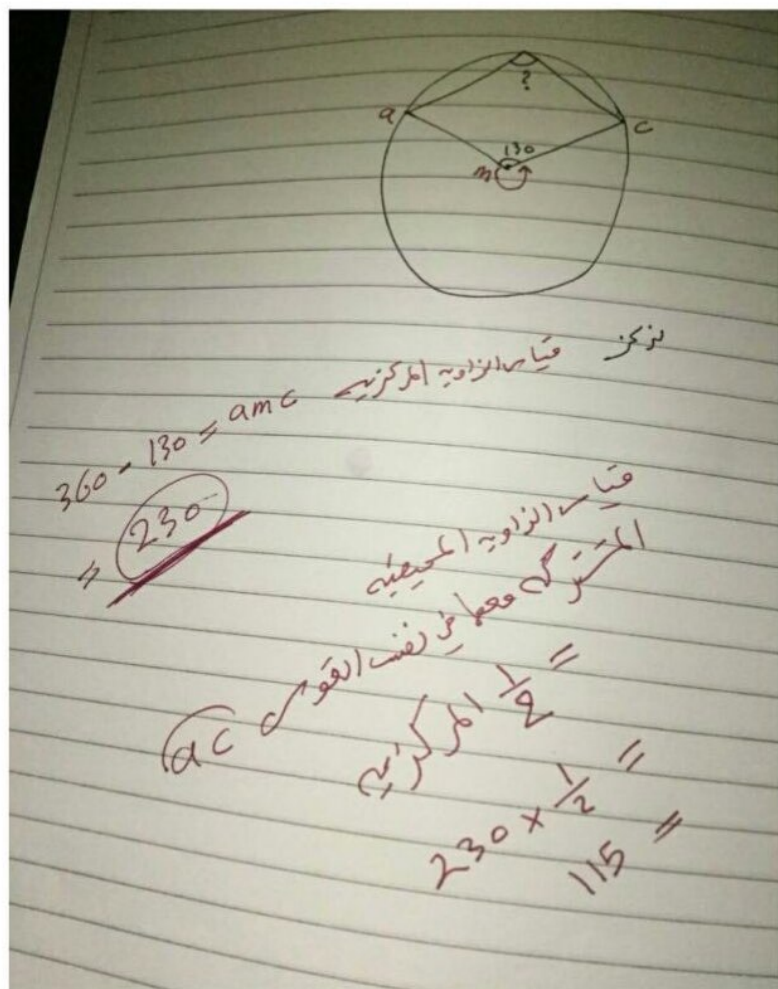 ?
a
c
130
m
نركز قياس الزاويه المركزيه amc = 360 - 130
= 230
قياس الزاويه المحيطيه
المشتركه معها في نفس القوس ac
= 1/2 المركزيه
= 1/2 × 230
= 115